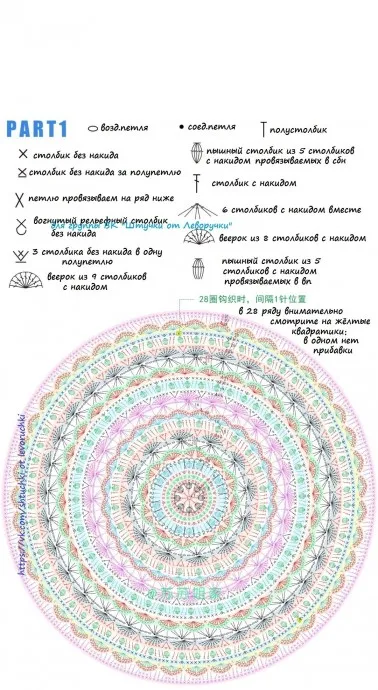 PART1
возд.петля
соед.петля
полустолбик
столбик без накида
пышный столбик из 5 столбиков
с накидом провязываемых в сбн
столбик без накида за полупетлю
столбик с накидом
петлю провязываем на ряд ниже
6 столбиков с накидом вместе
вогнутый рельефный столбик
без накида
для группы ВК "Штучки от Леворучки"
веерок из 8 столбиков с накидом
3 столбика без накида в одну
полупетлю
пышный столбик из 5
столбиков с накидом
провязываемых в вп
веерок из 9 столбиков
с накидом
28圈钩织时，间隔1针位置
в 28 ряду внимательно
смотрите на жёлтые
квадратики:
в одном нет
прибавки
https://vk.com/shtuchki_ot_levoruchki